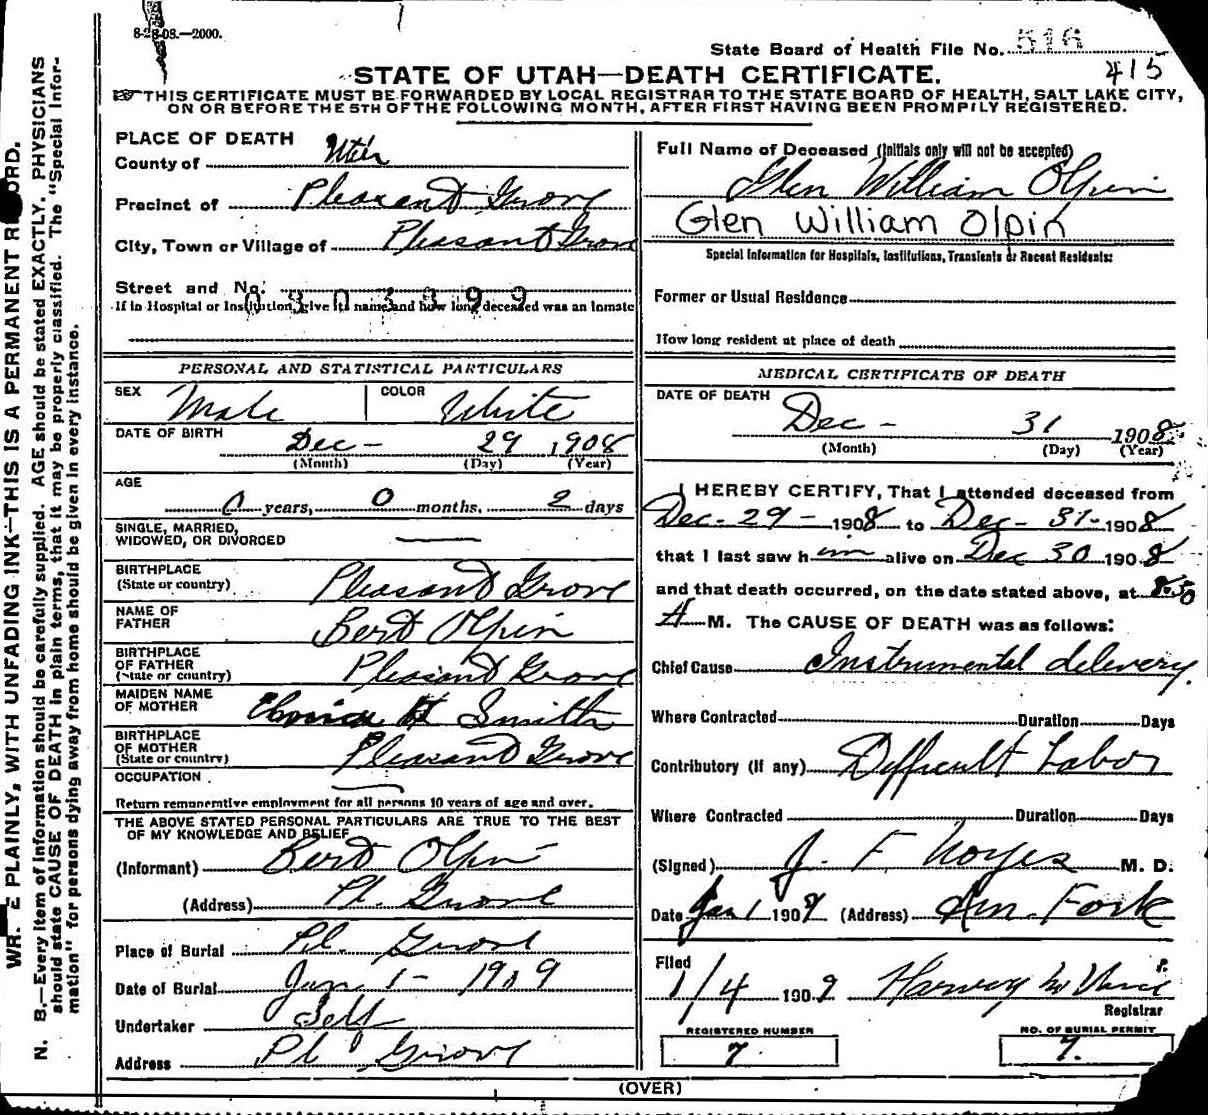 8-28-08.—2000.
State Board of Health File No. 516
415
STATE OF UTAH—DEATH CERTIFICATE.
THIS CERTIFICATE MUST BE FORWARDED BY LOCAL REGISTRAR TO THE STATE BOARD OF HEALTH, SALT LAKE CITY,
ON OR BEFORE THE 5TH OF THE FOLLOWING MONTH, AFTER FIRST HAVING BEEN PROMPTLY REGISTERED.
WRITE PLAINLY, WITH UNFADING INK—THIS IS A PERMANENT RECORD.
N. B.—Every item of information should be carefully supplied. AGE should be stated EXACTLY. PHYSICIANS
should state CAUSE OF DEATH in plain terms, that it may be properly classified. The "Special Infor-
mation" for persons dying away from home should be given in every instance.
PLACE OF DEATH
County of Utah
Precinct of Pleasant Grove
City, Town or Village of Pleasant Grove
Street and No.
0303399
If in Hospital or Institution, give its name and how long deceased was an inmate
PERSONAL AND STATISTICAL PARTICULARS
SEX Male COLOR White
DATE OF BIRTH Dec - 29 1908
(Month) (Day) (Year)
AGE
0 years, 0 months, 2 days
SINGLE, MARRIED,
WIDOWED, OR DIVORCED
BIRTHPLACE
(State or country) Pleasant Grove
NAME OF
FATHER Bert Olpin
BIRTHPLACE
OF FATHER
(State or country) Pleasant Grove
MAIDEN NAME
OF MOTHER H Smith
BIRTHPLACE
OF MOTHER
(State or country) Pleasant Grove
OCCUPATION
Return remunerative employment for all persons 10 years of age and over.
THE ABOVE STATED PERSONAL PARTICULARS ARE TRUE TO THE BEST
OF MY KNOWLEDGE AND BELIEF
(Informant) Bert Olpin
(Address) Pl. Grove
Place of Burial Pl. Grove
Date of Burial Jan 1 - 1909
Undertaker Self
Address Pl Grove
Full Name of Deceased (Initials only will not be accepted)
Glen William Olpin
Glen William Olpin
Special Information for Hospitals, Institutions, Transients or Recent Residents:
Former or Usual Residence
How long resident at place of death
MEDICAL CERTIFICATE OF DEATH
DATE OF DEATH
Dec - 31 1908
(Month) (Day) (Year)
I HEREBY CERTIFY, That I attended deceased from
Dec - 29 - 1908 to Dec - 31 - 1908
that I last saw him alive on Dec 30 1908
and that death occurred, on the date stated above, at 8:50
A M. The CAUSE OF DEATH was as follows:
Chief Cause Instrumental delivery.
Where Contracted Duration Days
Contributory (If any) Difficult Labor
Where Contracted Duration Days
(Signed) J. F Noyes M. D.
Date Jan 1 1909 (Address) Am. Fork
Filed
1/4 1909 Harvey
Registrar
REGISTERED NUMBER
7.
NO. OF BURIAL PERMIT
7.
(OVER)